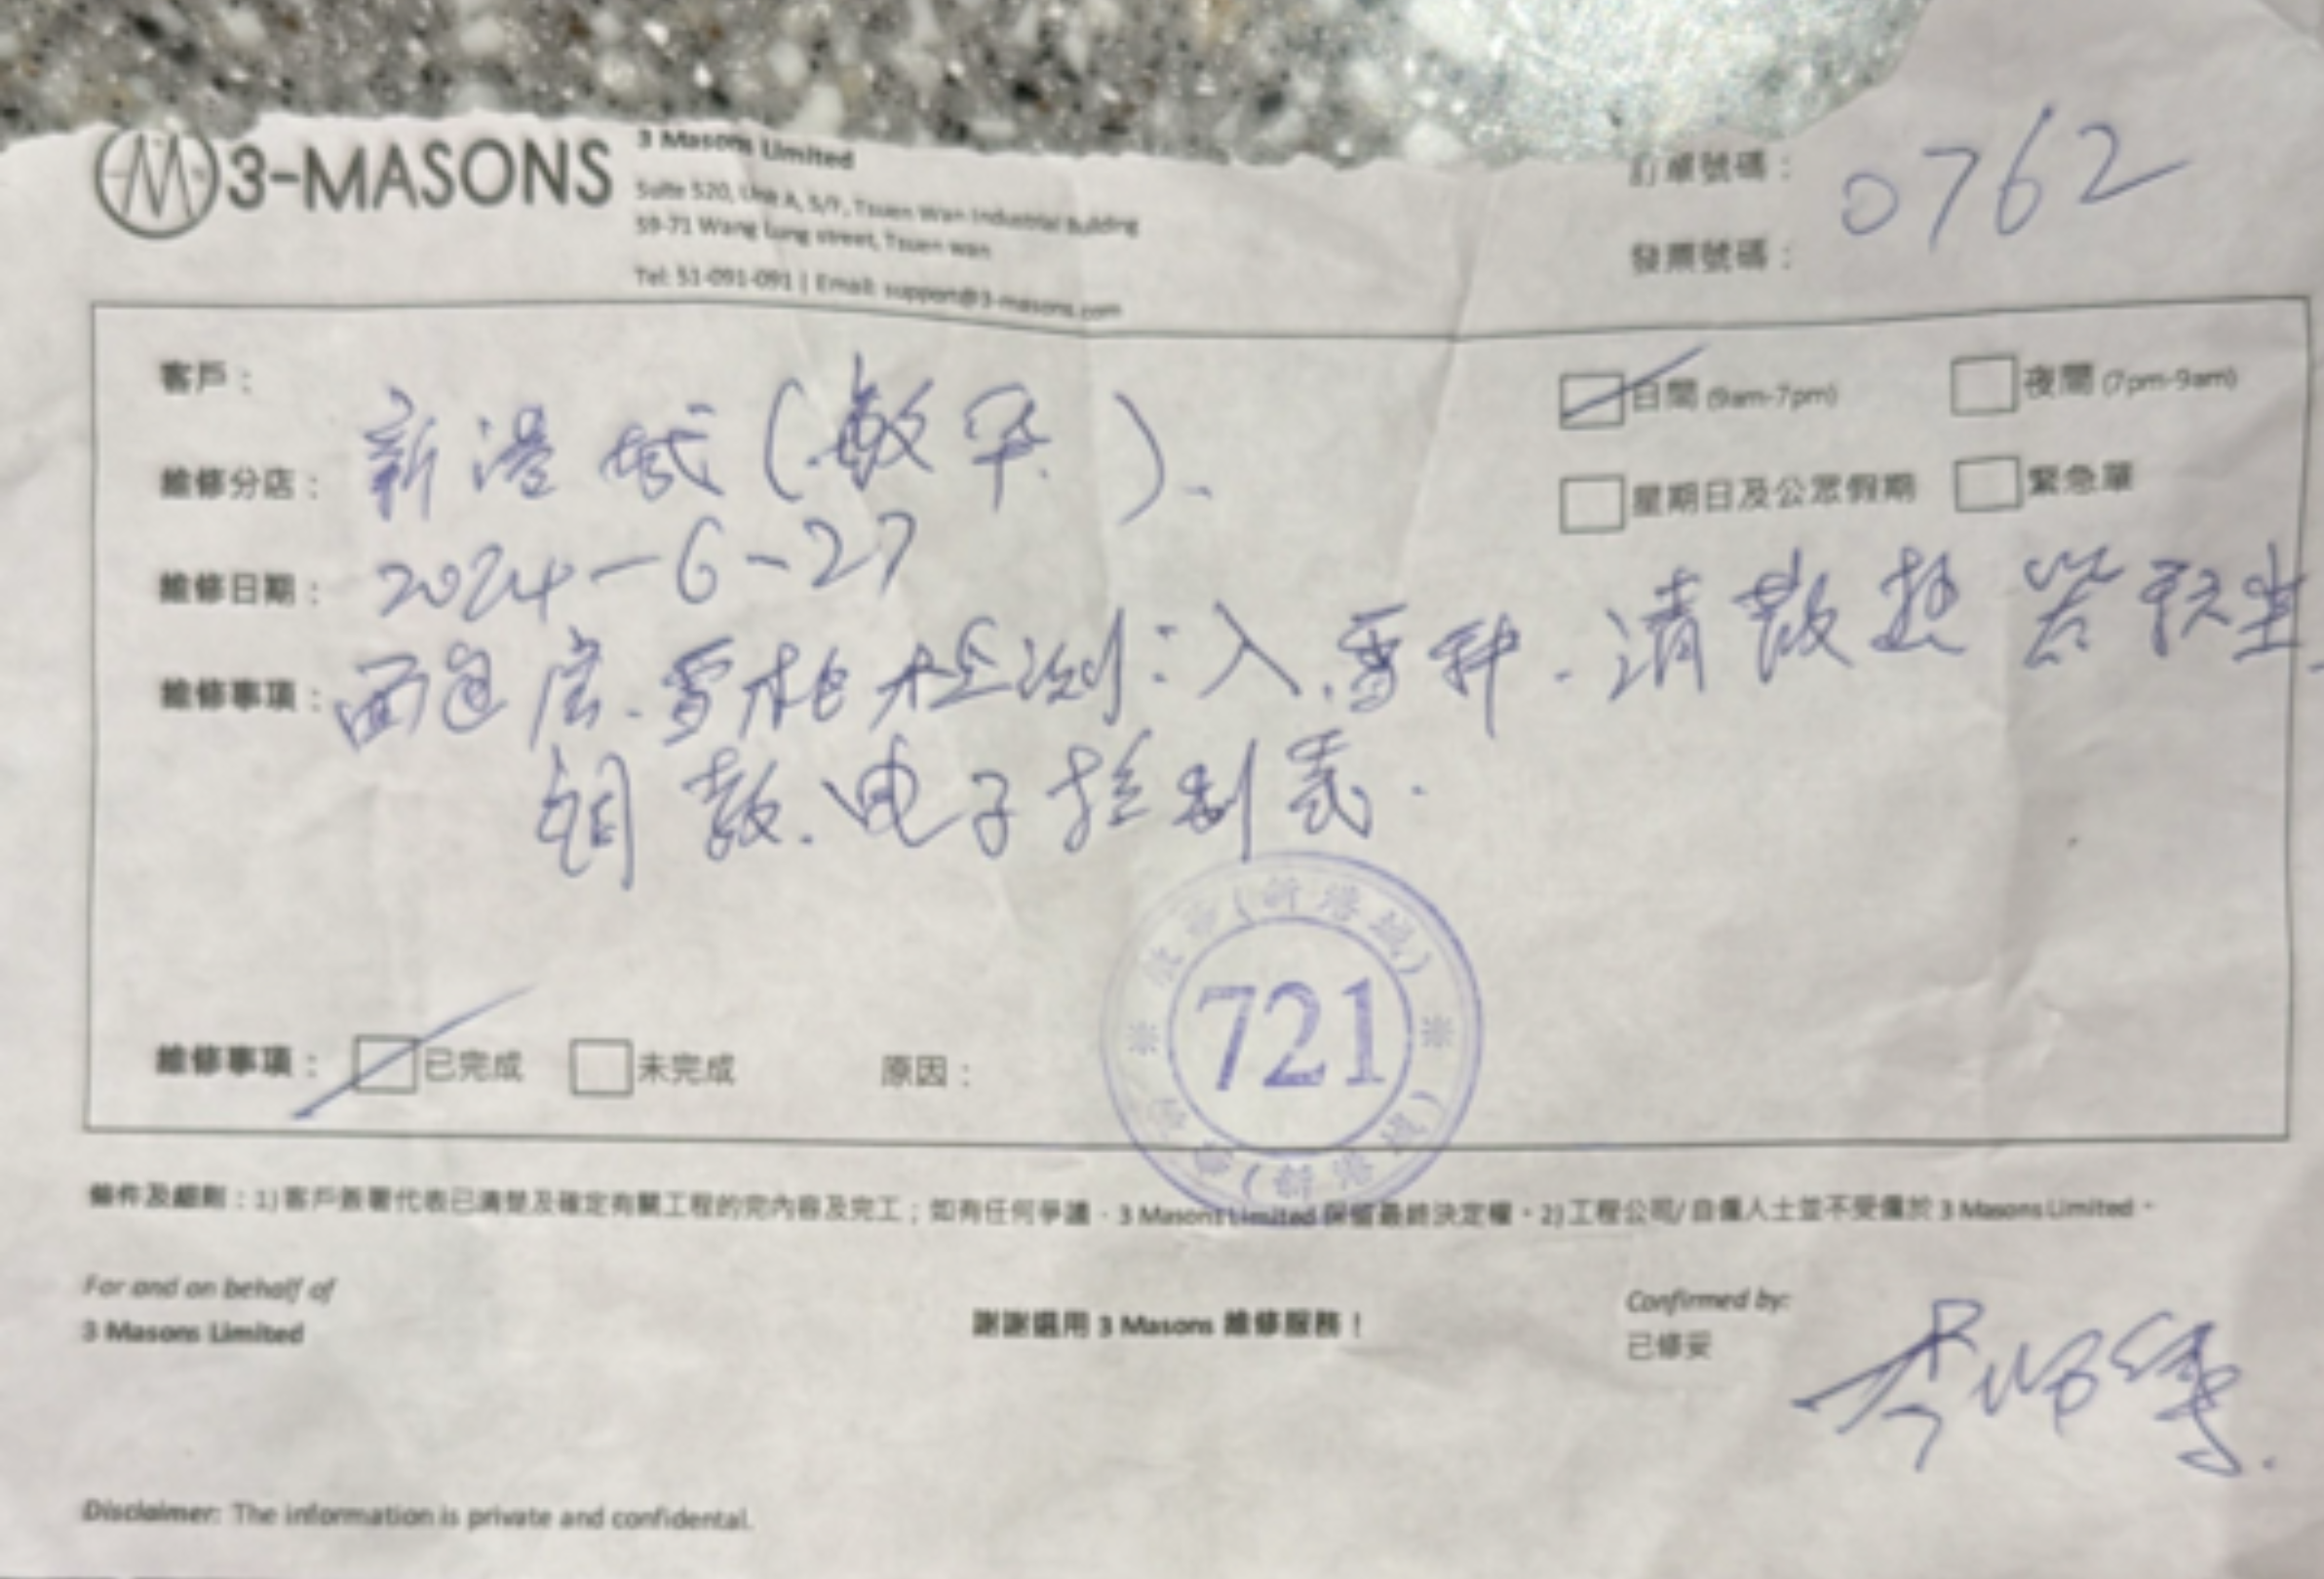 3-MASONS
3 Masons Limited
Suite 520, Unit A, 5/F, Tsuen Wan Industrial Building
59-71 Wang Lung street, Tsuen wan
Tel: 51-091-091 | Email: support@3-masons.com
訂單號碼：
0762
發票號碼：
客戶：
日間 (9am-7pm)
夜間 (7pm-9am)
維修分店：新港城(
星期日及公眾假期
緊急單
維修日期：2024-6-27
維修事項：面包房.雪柜检测:入雪种.清散热器
电子控制表.
新港城
721
新港城
維修事項：
已完成
未完成
原因：
條件及細則：1) 客戶簽署代表已清楚及確定有關工程的完內容及完工；如有任何爭議，3 Masons Limited 保留最終決定權。2) 工程公司/ 自僱人士並不受僱於 3 Masons Limited。
For and on behalf of
3 Masons Limited
謝謝選用 3 Masons 維修服務！
Confirmed by:
已修妥
Disclaimer: The information is private and confidental.